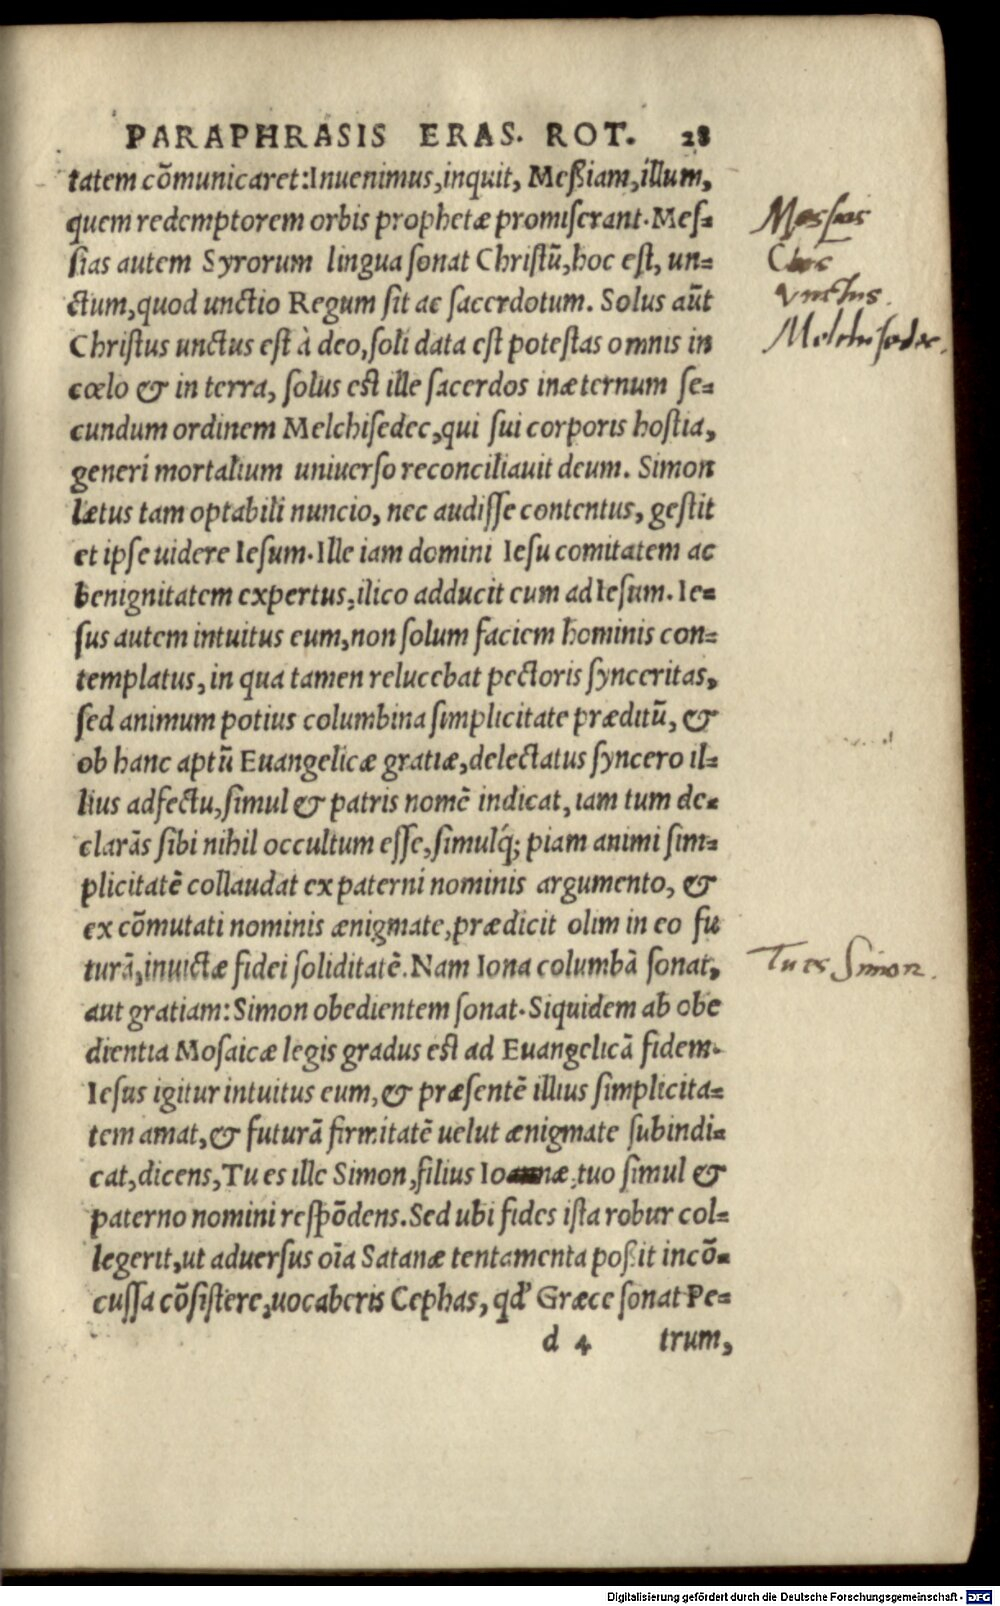 PARAPHRASIS ERAS. ROT. 28
tatem cõmunicaret: Inuenimus, inquit, Meßiam, illum,
quem redemptorem orbis prophetæ promiserant. Mes-
Messias
sias autem Syrorum lingua sonat Christũ, hoc est, un-
ctum, quod unctio Regum sit ac sacerdotum. Solus aũt
vnctus.
Christus unctus est à deo, soli data est potestas omnis in
Melchisedec.
cœlo & in terra, solus est ille sacerdos in æternum se-
cundum ordinem Melchisedec, qui sui corporis hostia,
generi mortalium uniuerso reconciliauit deum. Simon
lætus tam optabili nuncio, nec audisse contentus, gestit
et ipse uidere Iesum. Ille iam domini Iesu comitatem ac
benignitatem expertus, ilico adducit eum ad Iesum. Ie-
sus autem intuitus eum, non solum faciem hominis con-
templatus, in qua tamen relucebat pectoris synceritas,
sed animum potius columbina simplicitate præditũ, &
ob hanc aptũ Euangelicæ gratiæ, delectatus syncero il-
lius adfectu, simul & patris nomẽ indicat, iam tum de-
clarãs sibi nihil occultum esse, simulq́; piam animi sim-
plicitatẽ collaudat ex paterni nominis argumento, &
ex cõmutati nominis ænigmate, prædicit olim in eo fu
turã, inuictæ fidei soliditatẽ. Nam Iona columbã sonat,
Tu es Simon.
aut gratiam: Simon obedientem sonat. Siquidem ab obe
dientia Mosaicæ legis gradus est ad Euangelicã fidem.
Iesus igitur intuitus eum, & præsentẽ illius simplicita-
tem amat, & futurã firmitatẽ uelut ænigmate subindi-
cat, dicens, Tu es ille Simon, filius Ioannæ, tuo simul &
paterno nomini respõdens. Sed ubi fides ista robur col-
legerit, ut aduersus oĩa Satanæ tentamenta poßit incõ-
cussa cõsistere, uocaberis Cephas, qd' Græce sonat Pe-
d 4 trum,
Digitalisierung gefördert durch die Deutsche Forschungsgemeinschaft - DFG